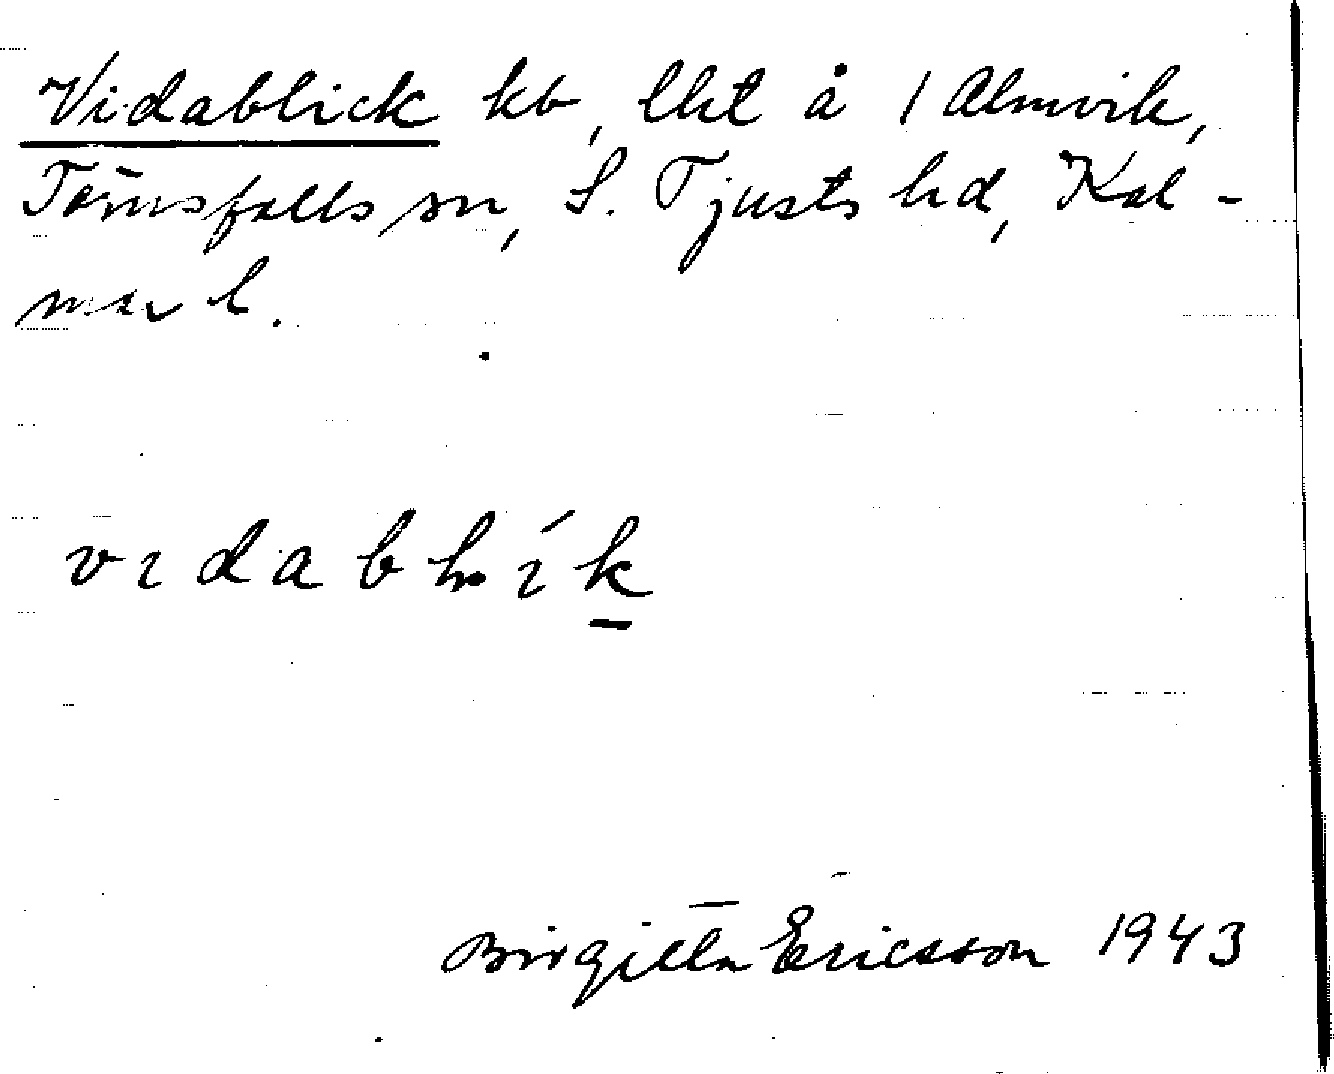 Vidablick kb, lht å 1 Almvik,
Törnsfalls sn, S. Tjusts hd, Kal-
mar l.
vıdablık
Birgitta Ericsson 1943